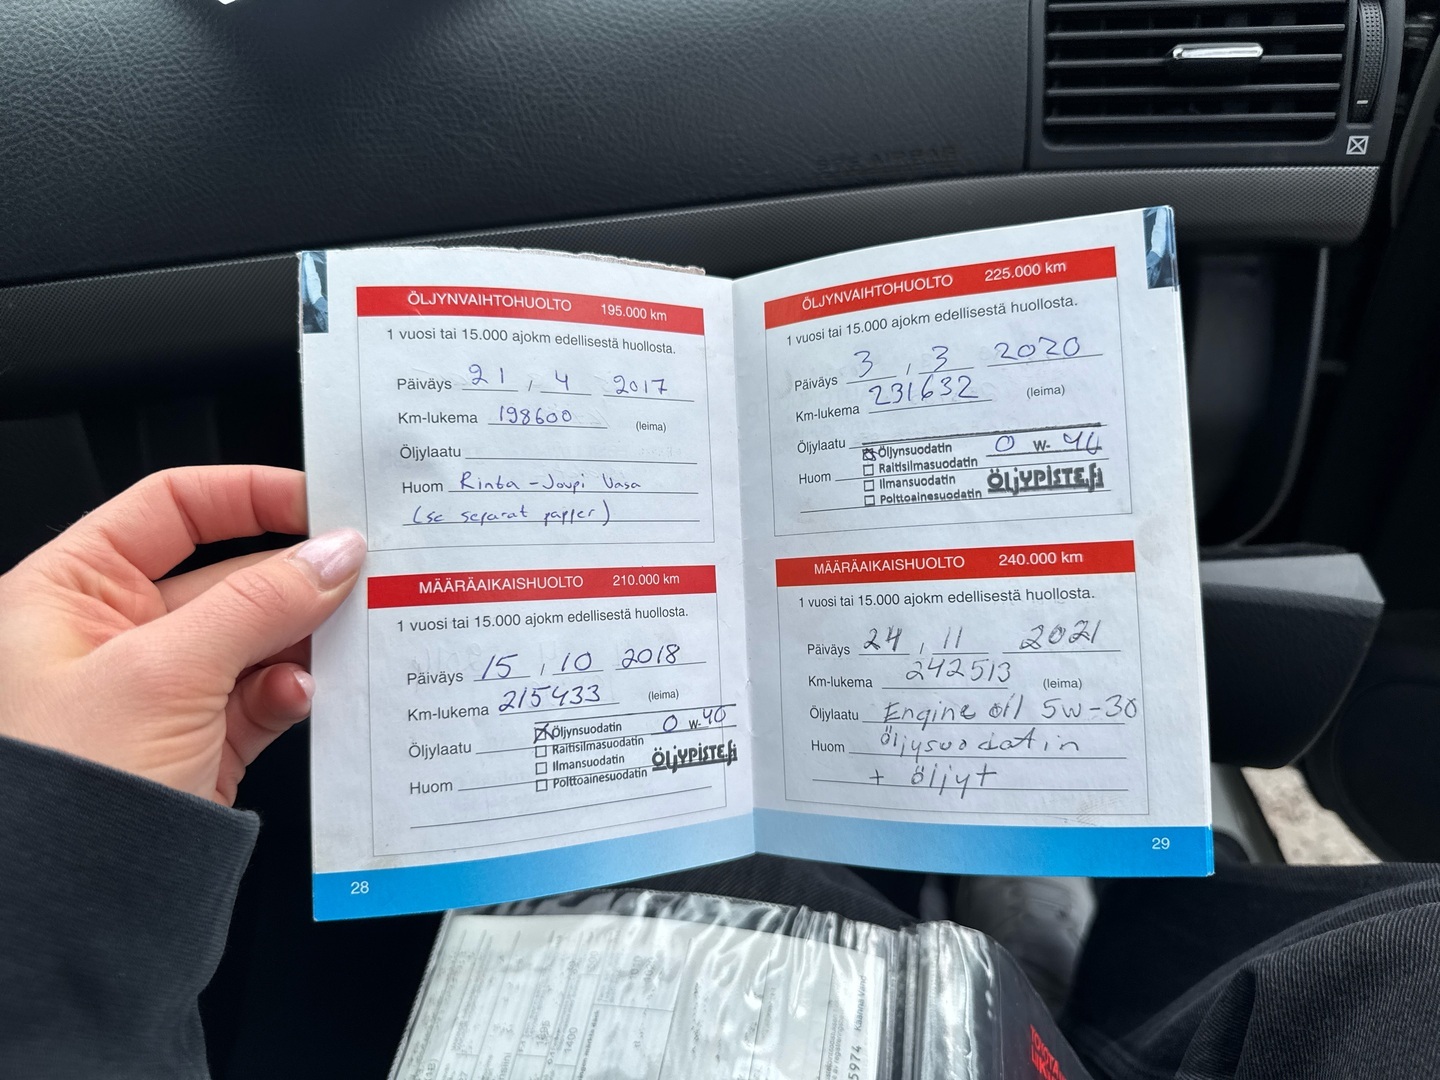 ÖLJYNVAIHTOHUOLTO 195.000 km
1 vuosi tai 15.000 ajokm edellisestä huollosta.
Päiväys 21 , 4 2017
Km-lukema 198600 (leima)
Öljylaatu
Huom Rinta-Joupi Vasa
(se separat papper)
MÄÄRÄAIKAISHUOLTO 210.000 km
1 vuosi tai 15.000 ajokm edellisestä huollosta.
Päiväys 15 , 10 2018
Km-lukema 215433 (leima)
Öljylaatu
Öljynsuodatin 0 W-40
Raitisilmasuodatin
Ilmansuodatin ÖLJYPISTE.fi
Huom
Polttoainesuodatin
28
ÖLJYNVAIHTOHUOLTO 225.000 km
1 vuosi tai 15.000 ajokm edellisestä huollosta.
Päiväys 3 , 3 2020
Km-lukema 231632 (leima)
Öljylaatu
Öljynsuodatin 0 W-40
Raitisilmasuodatin
Huom
Ilmansuodatin ÖLJYPISTE.fi
Polttoainesuodatin
MÄÄRÄAIKAISHUOLTO 240.000 km
1 vuosi tai 15.000 ajokm edellisestä huollosta.
Päiväys 24 , 11 2021
Km-lukema 242513 (leima)
Öljylaatu Engine oil 5W-30
Huom öljysuodatin
+ öljyt
29